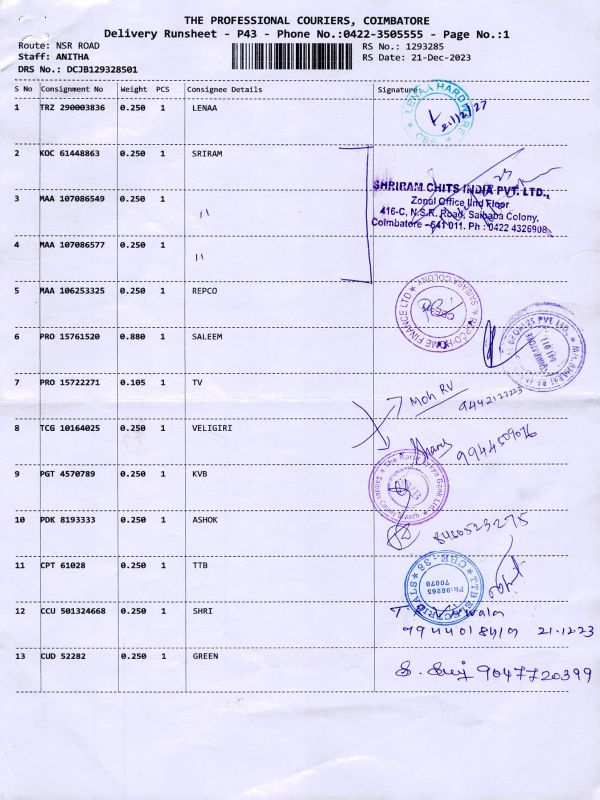 THE PROFESSIONAL COURIERS, COIMBATORE
Delivery Runsheet - P43 - Phone No.:0422-3505555 - Page No.:1
Route: NSR ROAD RS No.: 1293285
Staff: ANITHA RS Date: 21-Dec-2023
DRS No.: DCJB129328501
S No Consignment No Weight PCS Consignee Details Signature
1 TRZ 290003836 0.250 1 LENAA
LENAA HARDWARE
CBE
2 KOC 61448863 0.250 1 SRIRAM
SHRIRAM CHITS INDIA PVT. LTD.,
Zonal Office IInd Floor
3 MAA 107086549 0.250 1 〃
416-C, N.S.R. Road, Saibaba Colony,
Coimbatore - 641 011. Ph : 0422 4326908
4 MAA 107086577 0.250 1 〃
5 MAA 106253325 0.250 1 REPCO
REPCO HOME FINANCE LTD
SAIBABA COLONY
CBE
6 PRO 15761520 0.880 1 SALEEM
7 PRO 15722271 0.105 1 TV
8 TCG 10164025 0.250 1 VELIGIRI
9944509076
9 PGT 4570789 0.250 1 KVB
The Karur Vysya Bank Ltd.
10 PDK 8193333 0.250 1 ASHOK
8460523275
11 CPT 61028 0.250 1 TTB
CBE - 38
12 CCU 501324668 0.250 1 SHRI
21.12.23
13 CUD 52282 0.250 1 GREEN
9047720399